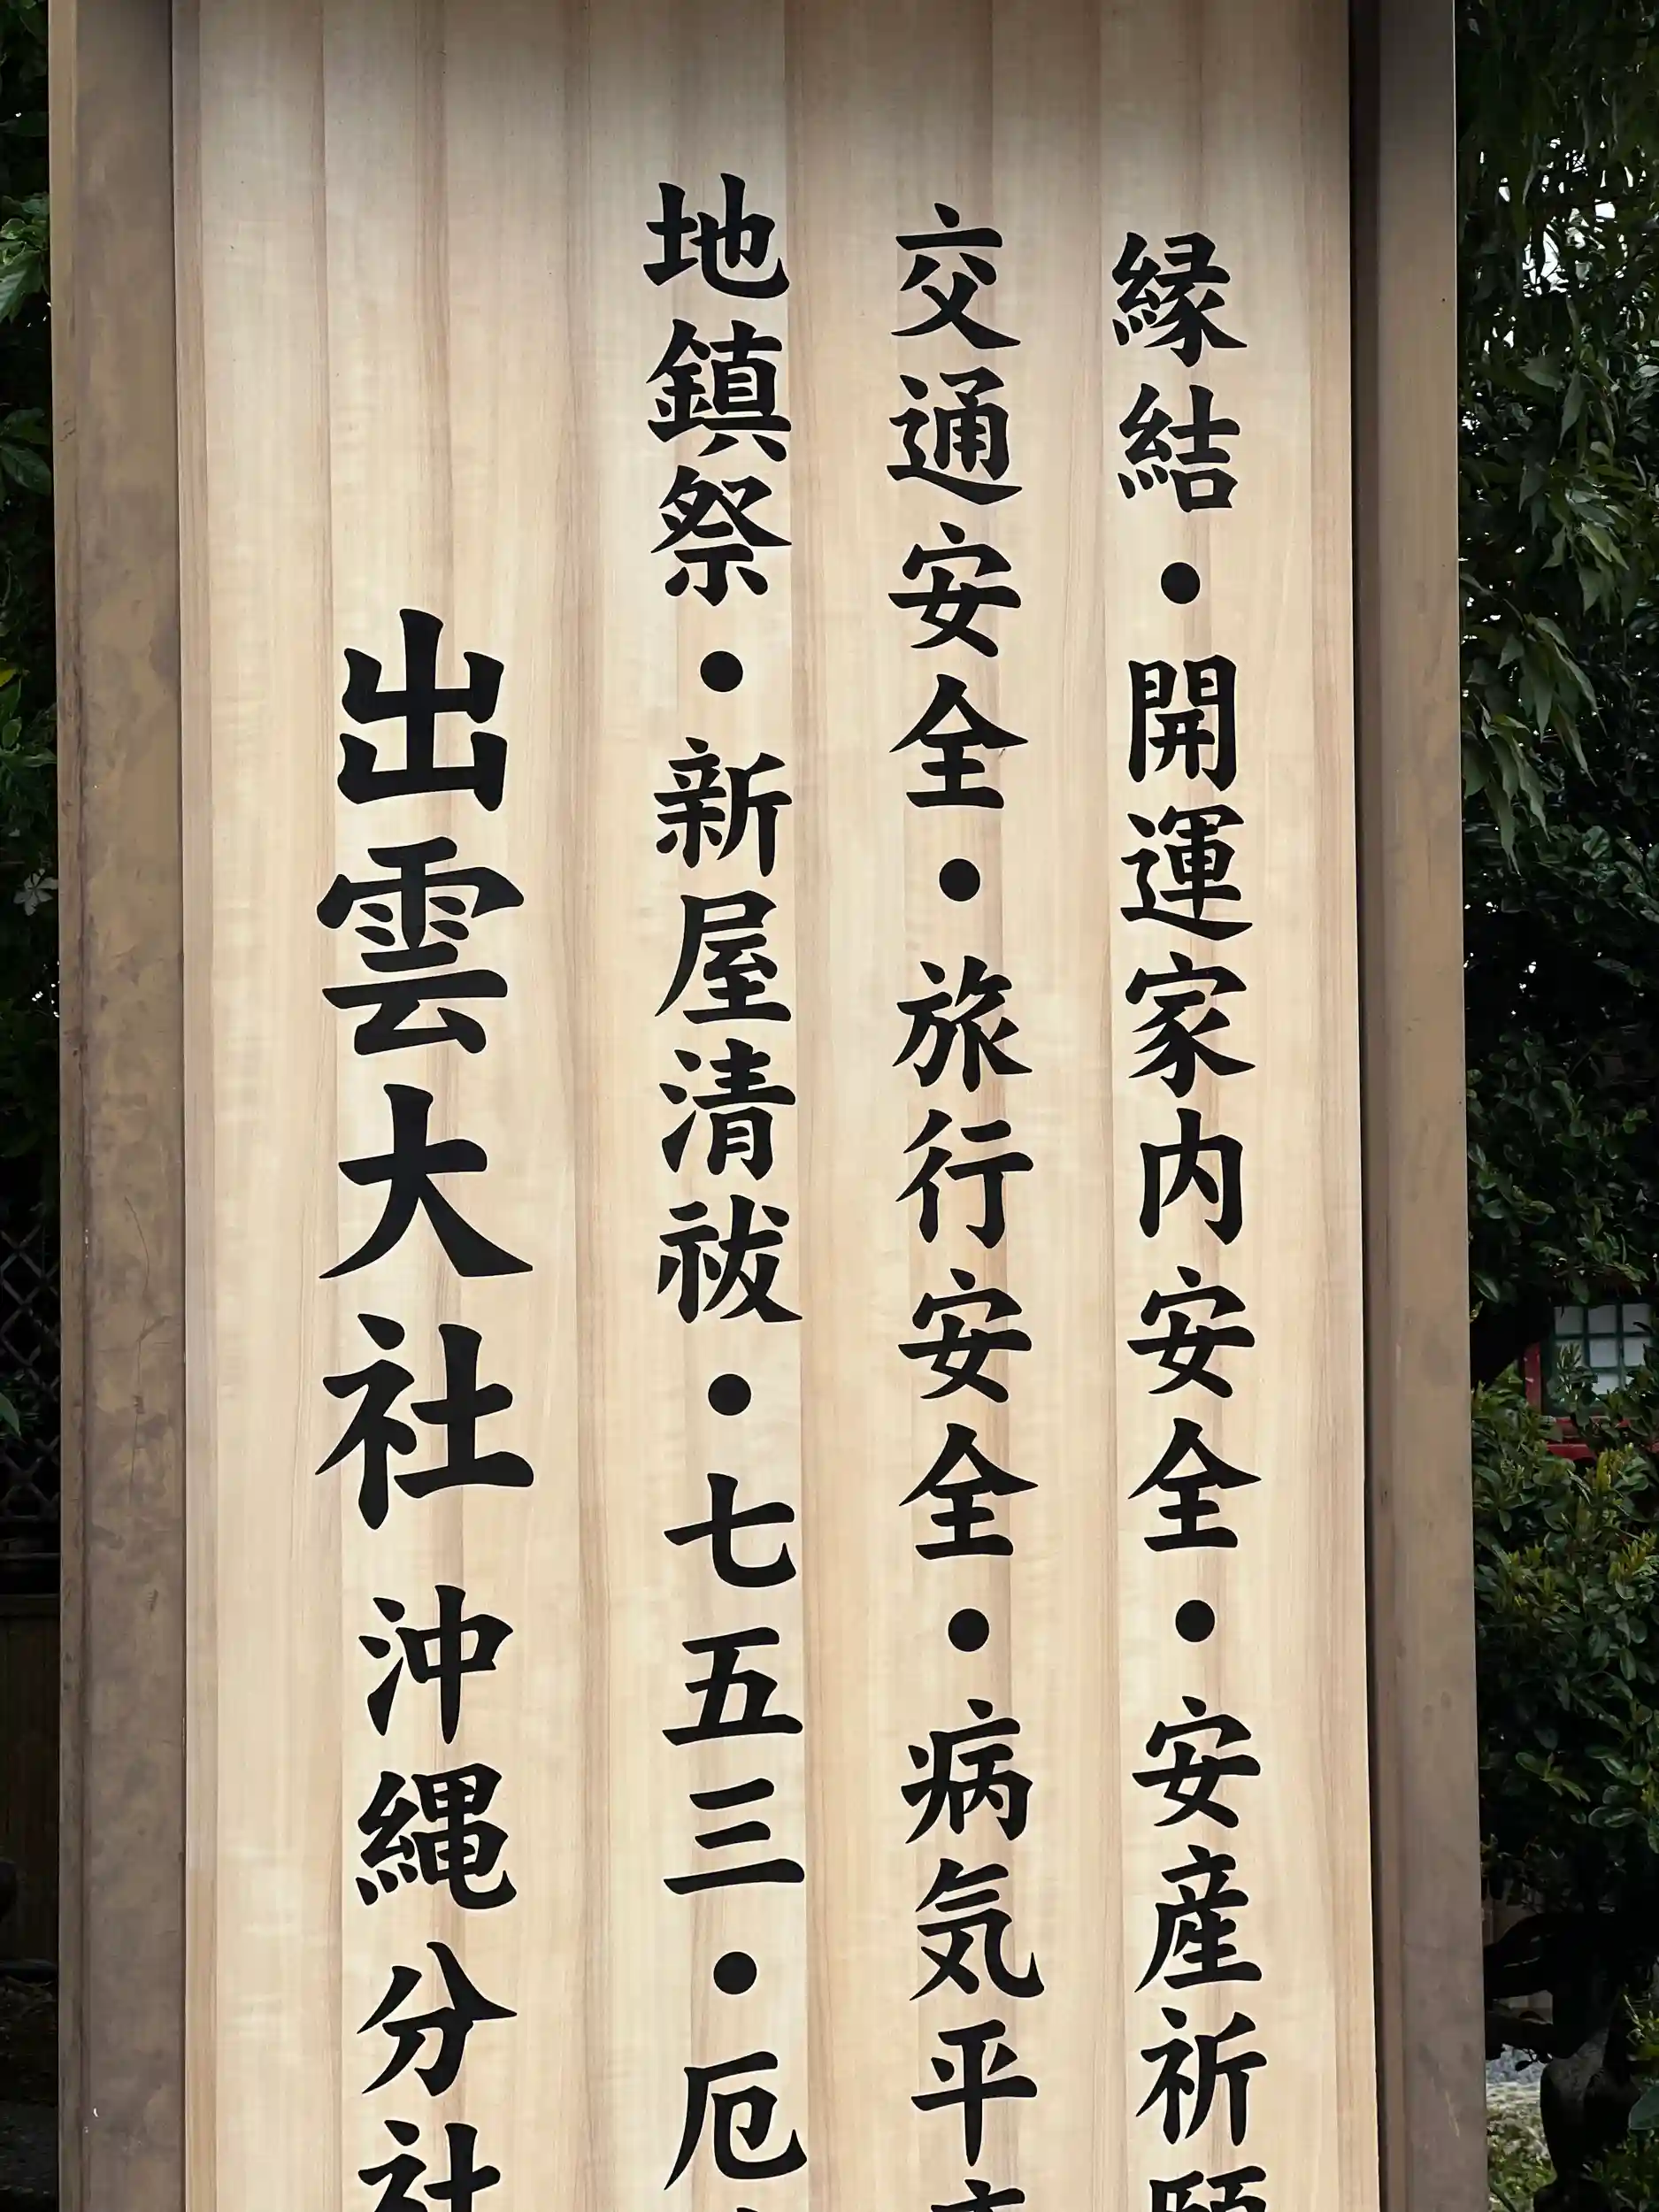 縁結・開運家内安全・安産祈願
交通安全・旅行安全・病気平
地鎮祭・新屋清祓・七五三・厄
出雲大社 沖縄分社